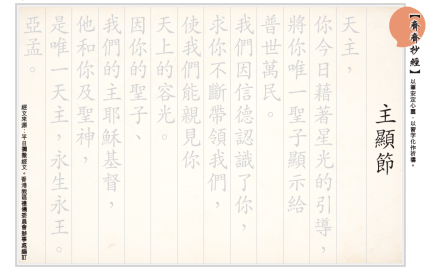 【齊齊抄經】
以筆安定心靈，以習字化作祈禱。
主顯節
天主，
你今日藉著星光的引導，
將你唯一聖子顯示給
普世萬民。
我們因信德認識了你，
求你不斷帶領我們，
使我們能親見你
天上的容光。
因你的聖子、
我們的主耶穌基督，
他和你及聖神，
是唯一天主，永生永王。
亞孟。
經文來源：平日彌撒經文，香港教區禮儀委員會辦事處編訂